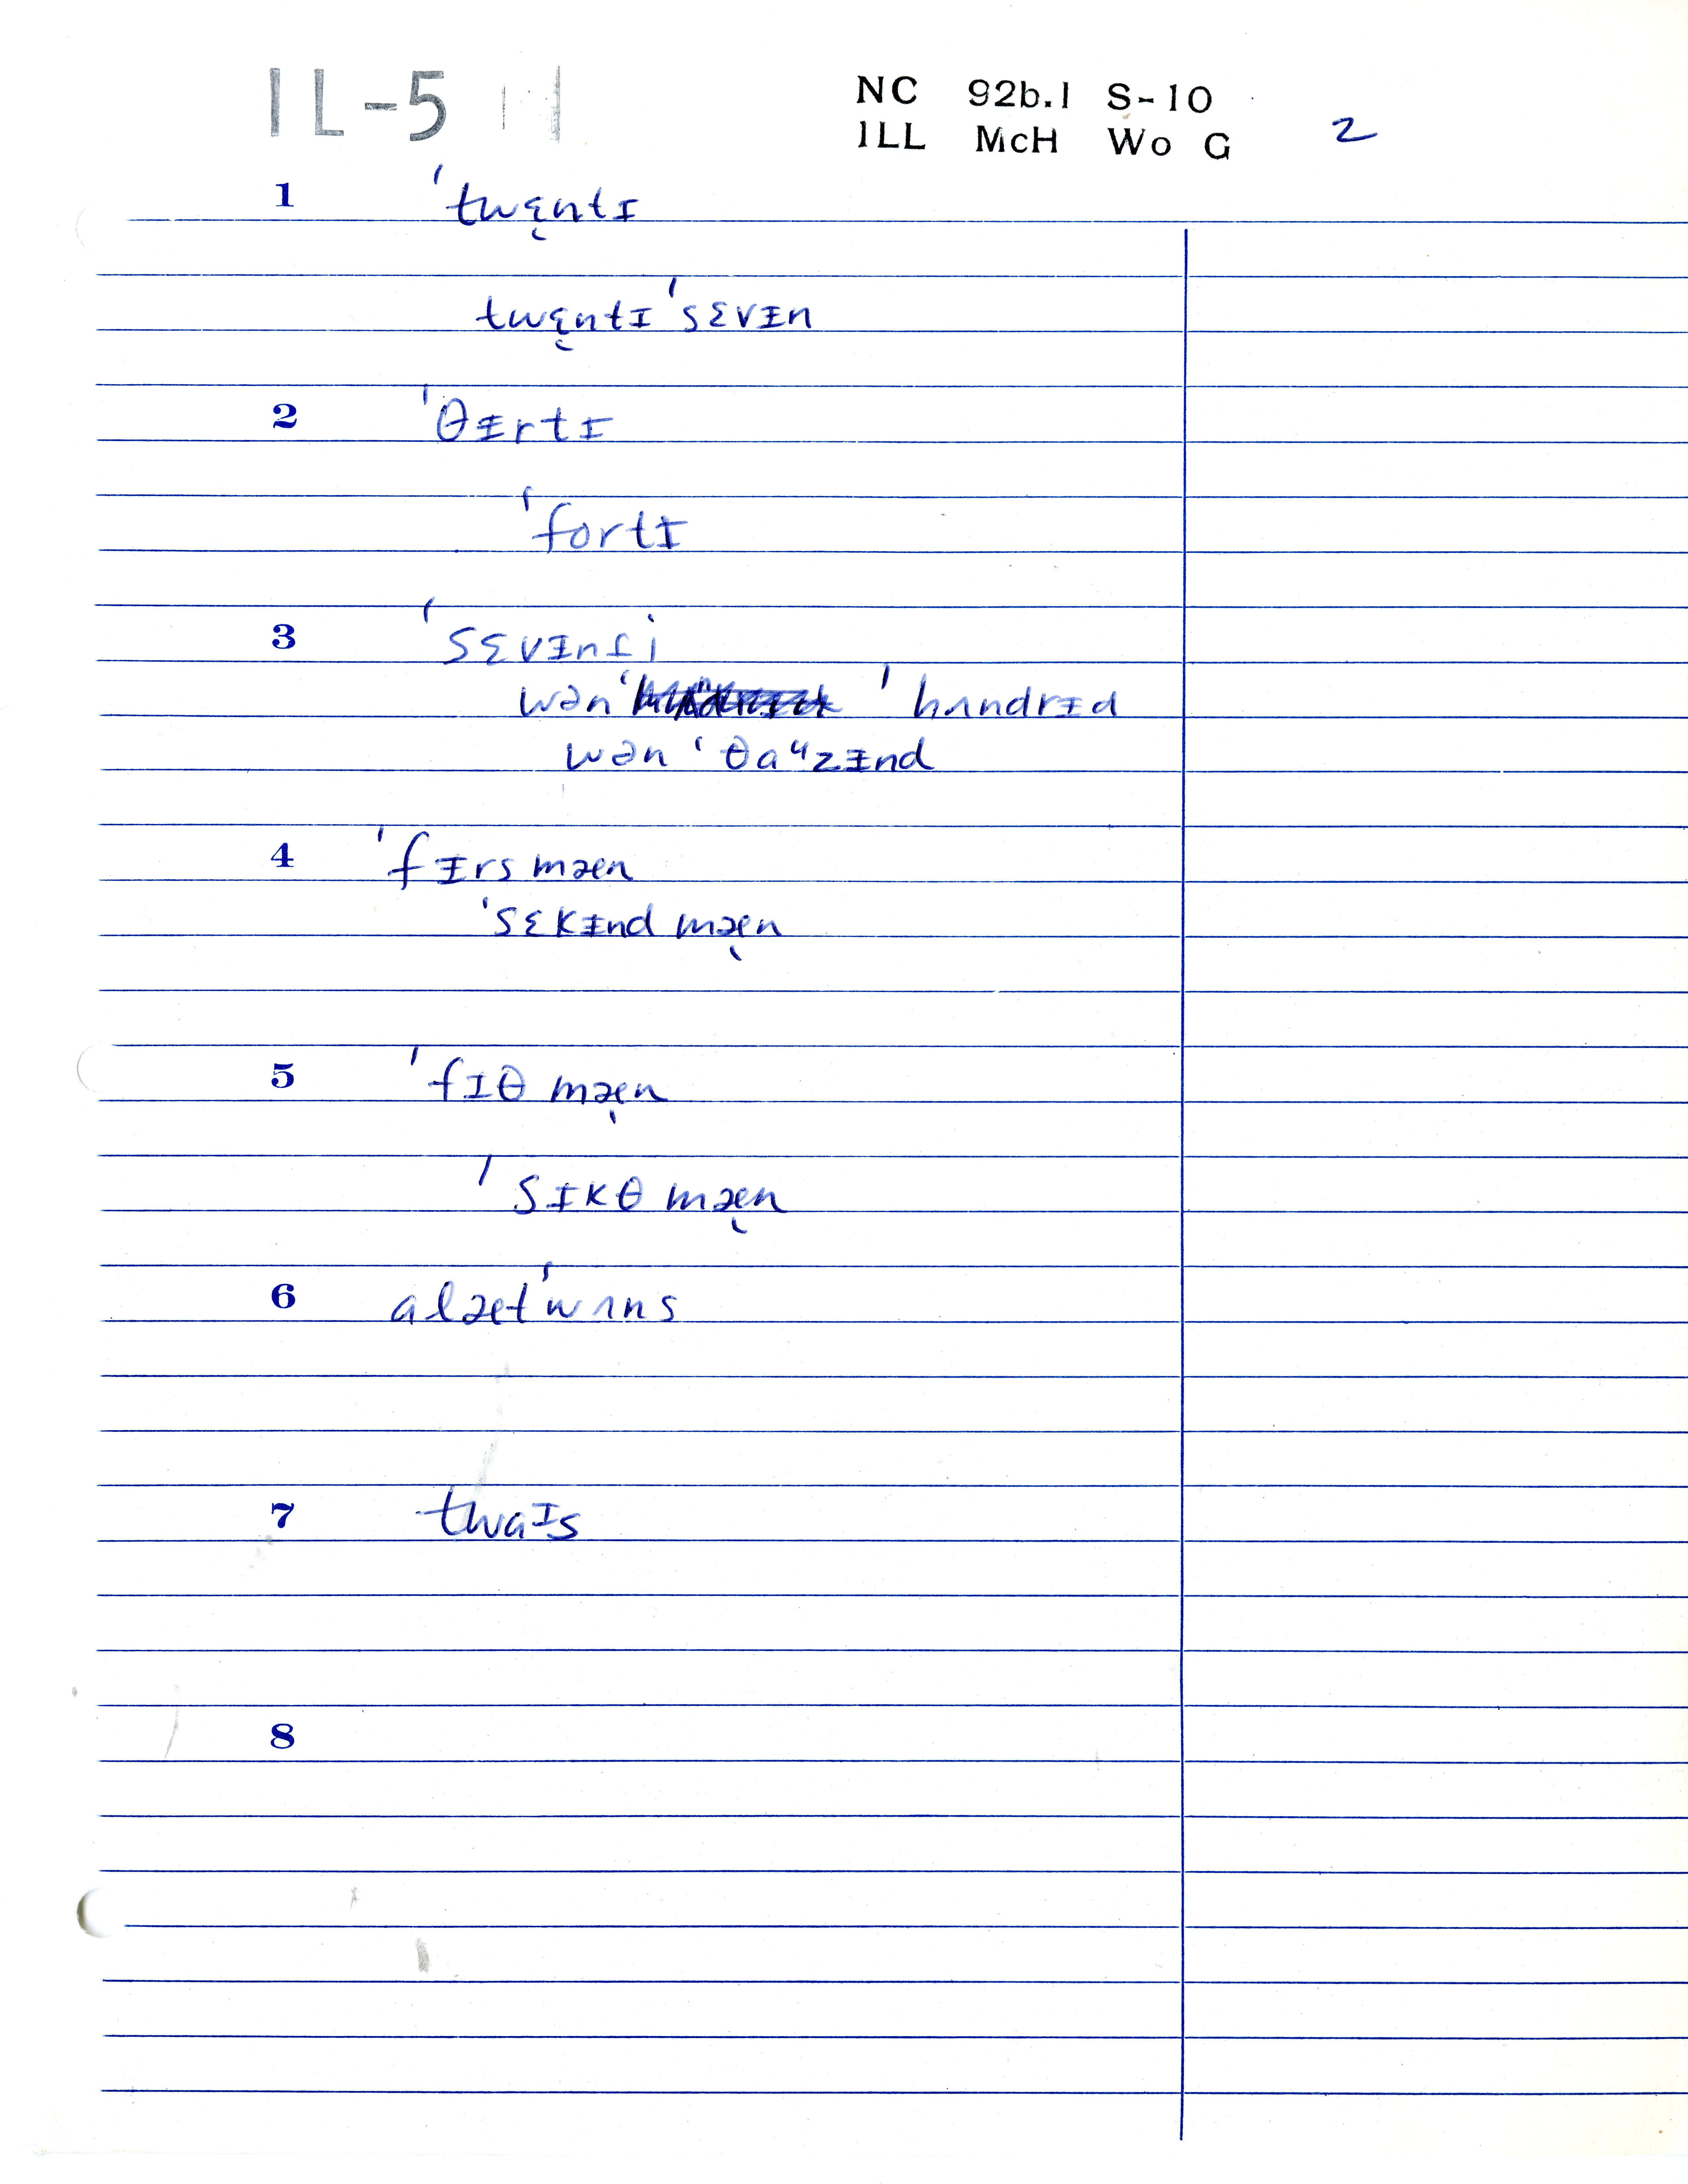 IL-5
NC 92b.1 S-10
ILL McH Wo G 2
1 ˈtwɛ̜ntɪ
twɛ̜ntɪˈsɛvɪn
2 ˈθɪrtɪ
ˈfortɪ
3 ˈsɛvɪnti
wən ˈhʌndrɪd
wən ˈθaᵘzɪnd
4 ˈfɪrs mæn
ˈsɛkɪnd mæ̜n
5 ˈfɪθ mæ̜n
ˈsɪkθ mæ̜n
6 alætˈwʌns
7 twaɪs
8